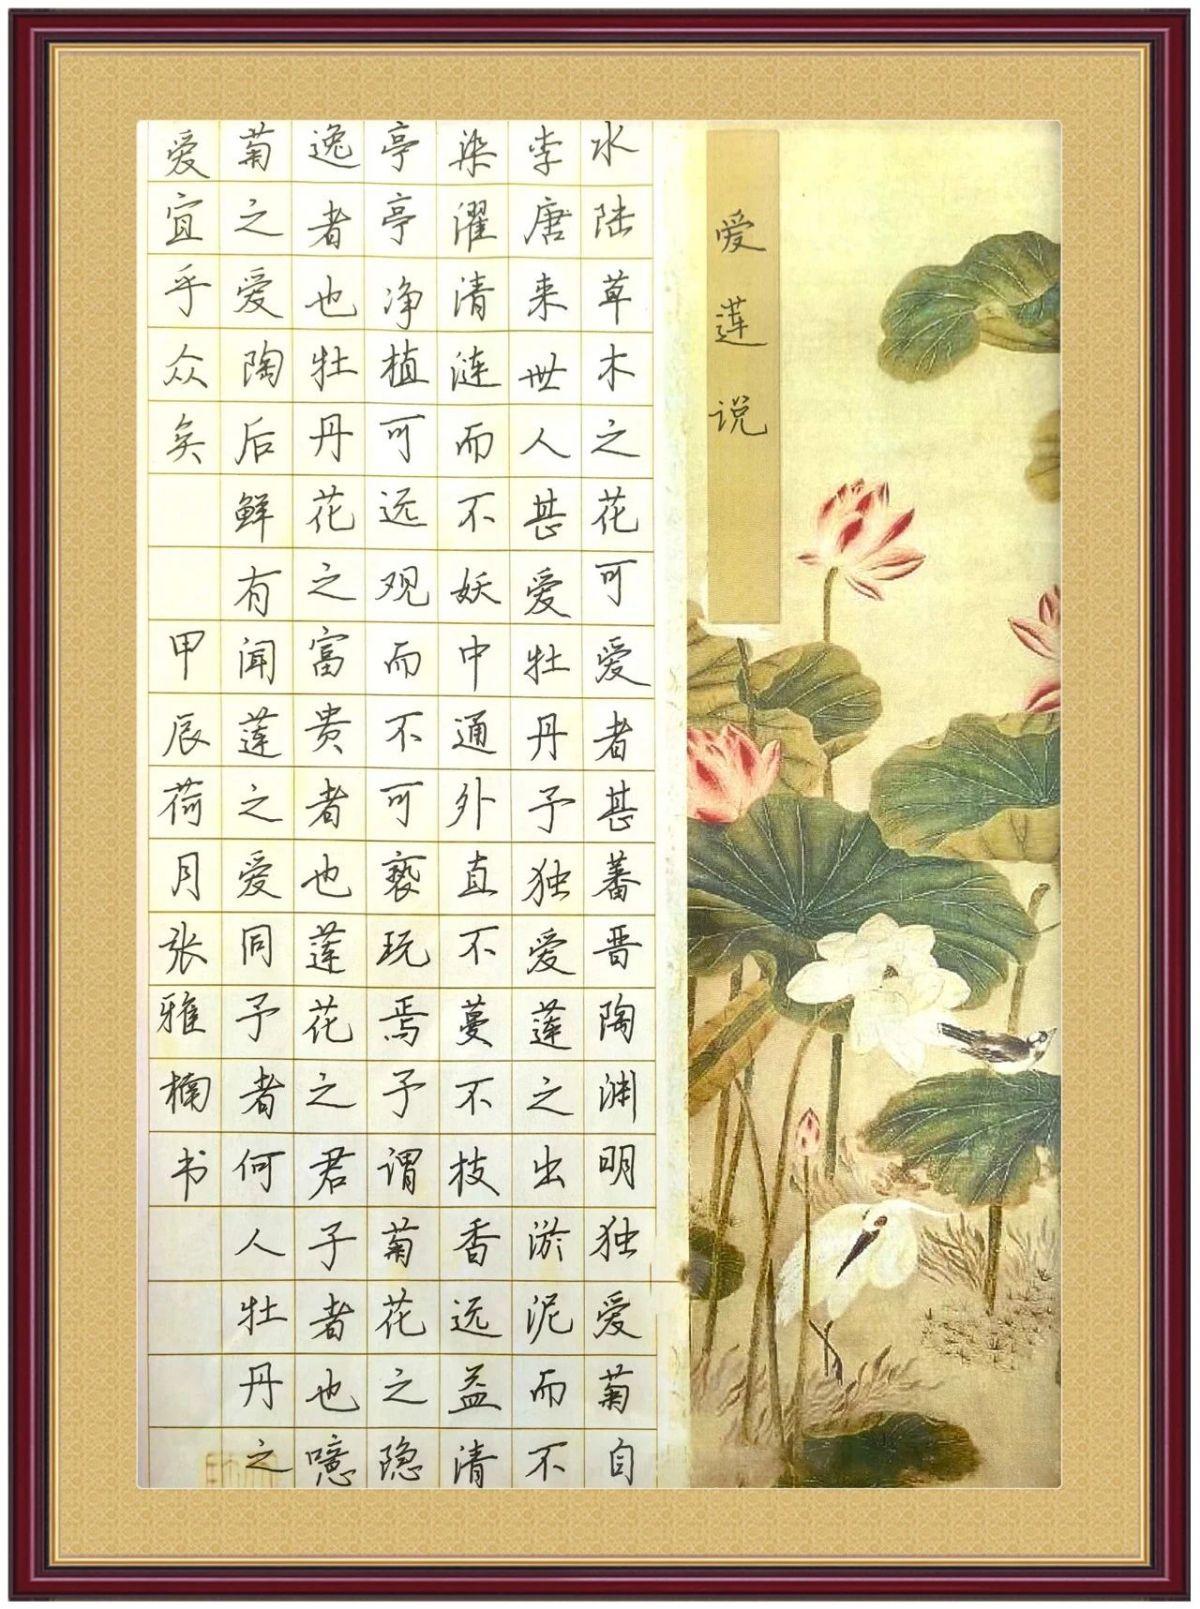 爱莲说
水陆草木之花可爱者甚蕃晋陶渊明独爱菊自
李唐来世人甚爱牡丹予独爱莲之出淤泥而不
染濯清涟而不妖中通外直不蔓不枝香远益清
亭亭净植可远观而不可亵玩焉予谓菊花之隐
逸者也牡丹花之富贵者也莲花之君子者也噫
菊之爱陶后鲜有闻莲之爱同予者何人牡丹之
爱宜乎众矣
甲辰荷月张雅楠书